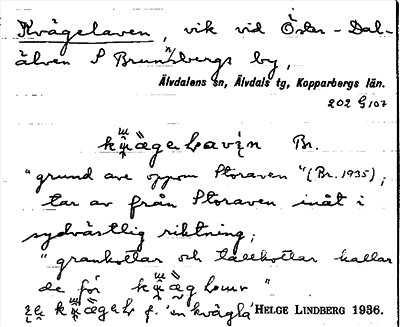 Kvägelaven, vik vid Öster-Dal-
älven S Brunnsbergs by,
Älvdalens sn, Älvdals tg, Kopparbergs län.
202 G 107
Br.
"grund ave oppom Storaven" (Br. 1935);
tar av från Storaven inåt i
sydvästlig riktning;
"grankottar och tallkottar kallar
de för
f. 'en kvägla' HELGE LINDBERG 1936.